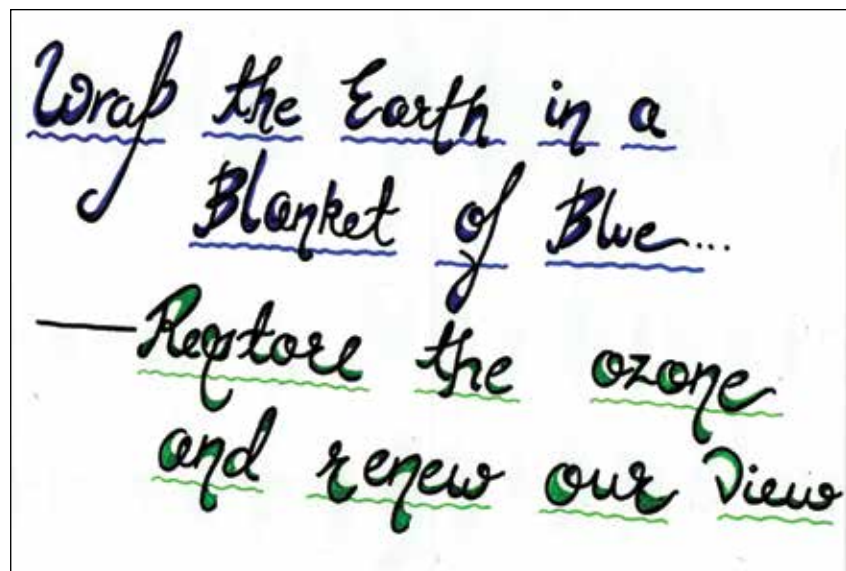 Wrap the Earth in a
Blanket of Blue...
— Restore the ozone
and renew our View